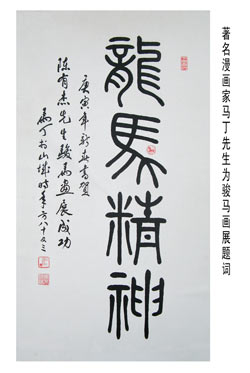 著名漫画家马丁先生为骏马画展题词
龍馬精神
庚寅年新春書賀
陈有杰先生駿馬畫展成功
馬丁於山城時年方八十又三